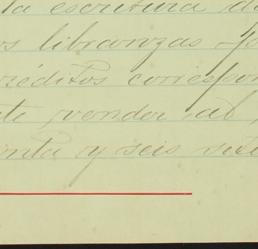 ta escritura de
os libranzas
réditos correspon
te vender al
enta y seis